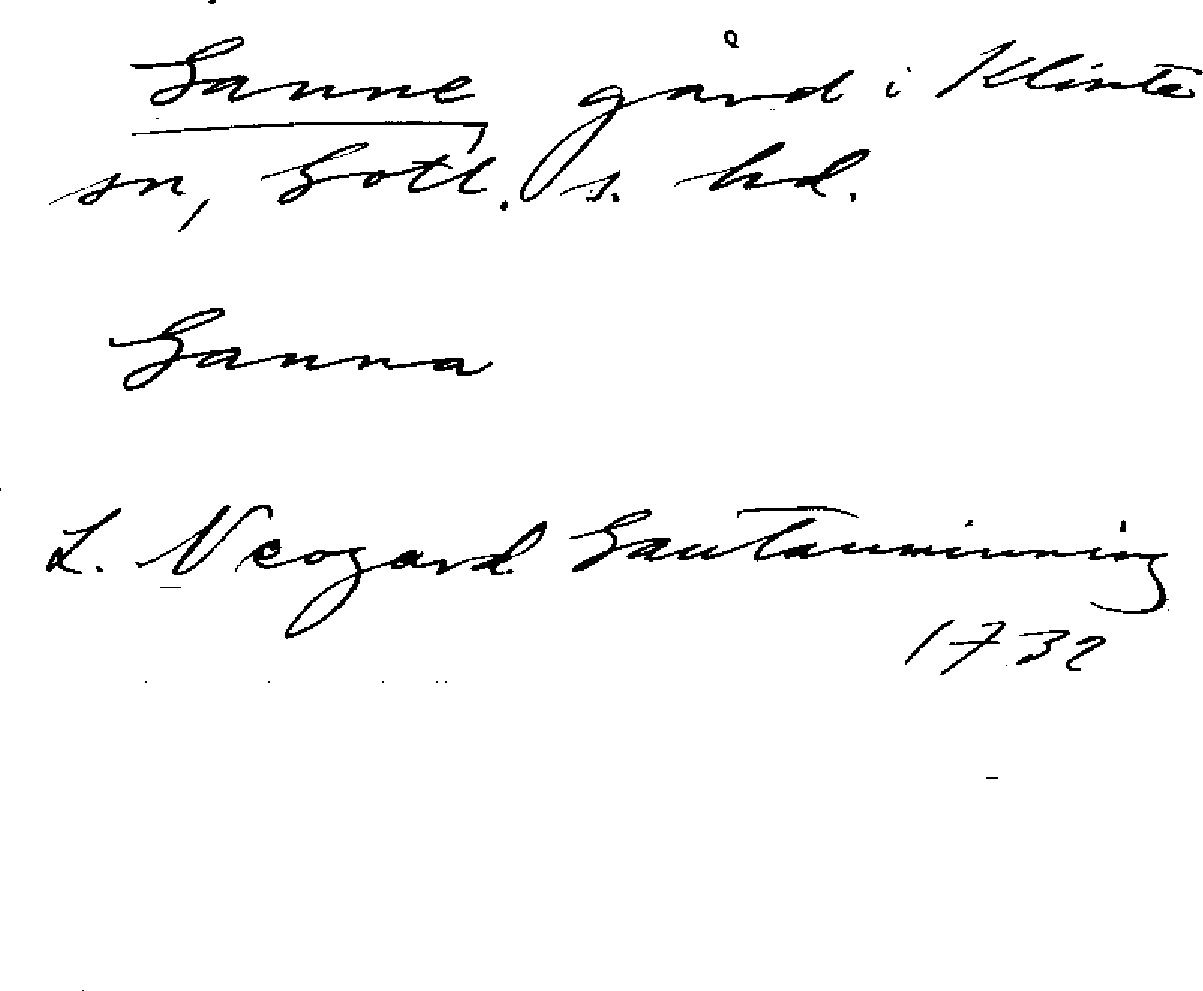 Sanne, gård i Klinte
sn, Gotl. s. hd.
Sanna
L. Neogard Gautauminning
1732